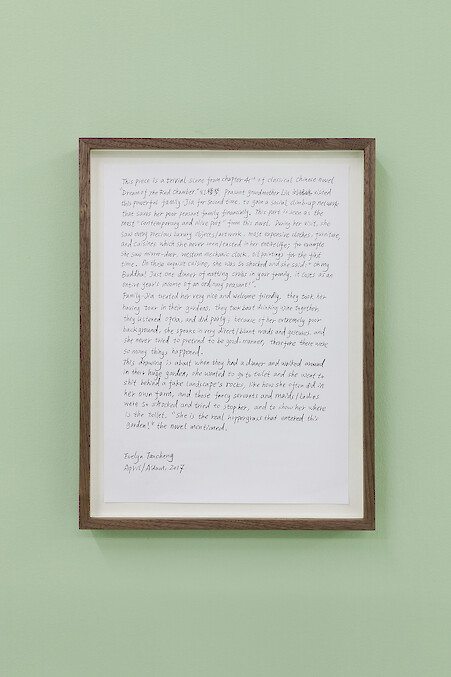 This piece is a trivial scene from chapter 41st of classical Chinese novel
"Dream of the Red Chamber" 红楼梦 peasant grandmother Liu visited
this powerful family Jia for second time, to gain a social climb-up network
that saves her poor peasant family financially. This part is seen as the
most "contemporary and alive part" from this novel. During her visit, she
saw many precious luxury objects/artwork, most expensive clothes, furniture,
and cuisines which she never seen/tasted in her entire life, for example
she saw mirror-door, western mechanic clock, oil paintings for the first
time. On these requisite cuisine, she was so shocked and she said: "oh my
Buddha! Just one dinner of eatting crabs in your family, it costs as an
entire year's income of an ordinary peasant!".
Family-Jia treated her very nice and welcome friendly, they took her
having tour in their gardens, they took boat drinking wine together,
they listened opera, and did party; because of her extremely poor
background, she speaks in very direct/blunt words and gestures and
she never tried to pretend to be good-manner, therefore there were
so many things happened.
This drawing is about when they had a dinner and walked around
in their huge garden, she wanted to go to toilet and she went to
shit behind a fake landscape's rocks, like how she often did in
her own farm, and those fancy servants and maids/ladies
were so shocked and tried to stop her, and to show her where
is the toilet. "She is the real hoppergrass that entered this
garden!" the novel mentioned.
Evelyn Taocheng
April/A'dam, 2017